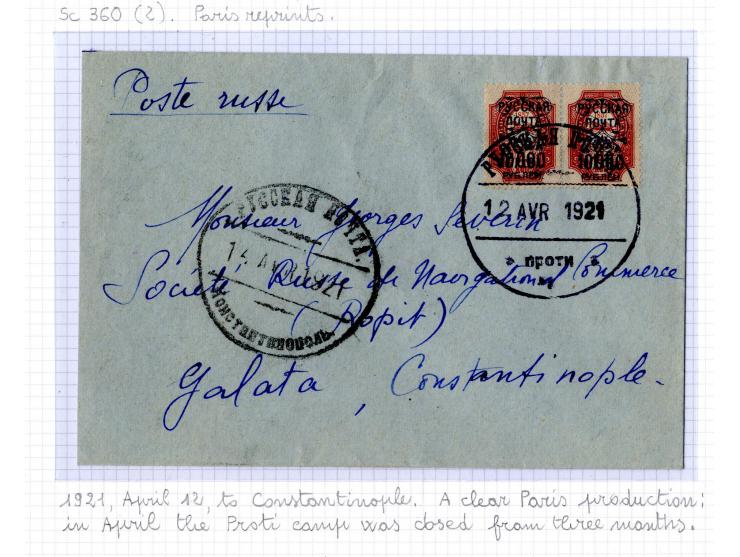 Sc 360 (2). Paris reprints.
Poste russe
РУССКАЯ РУССКАЯ
ПОЧТА ПОЧТА
10000 10000
РУБЛЕЙ РУБЛЕЙ
РУССКАЯ ПОЧТА
12 AVR 1921
ПРОТИ
РУССКАЯ ПОЧТА.
14 AVR 1921
КОНСТАНТИНОПОЛЬ
Monsieur Georges Severin
Société Russe de Navigation Commerce
(Ropit)
Galata, Constantinople.
1921, April 12, to Constantinople. A clear Paris production:
in April the Proti camp was closed from three months.